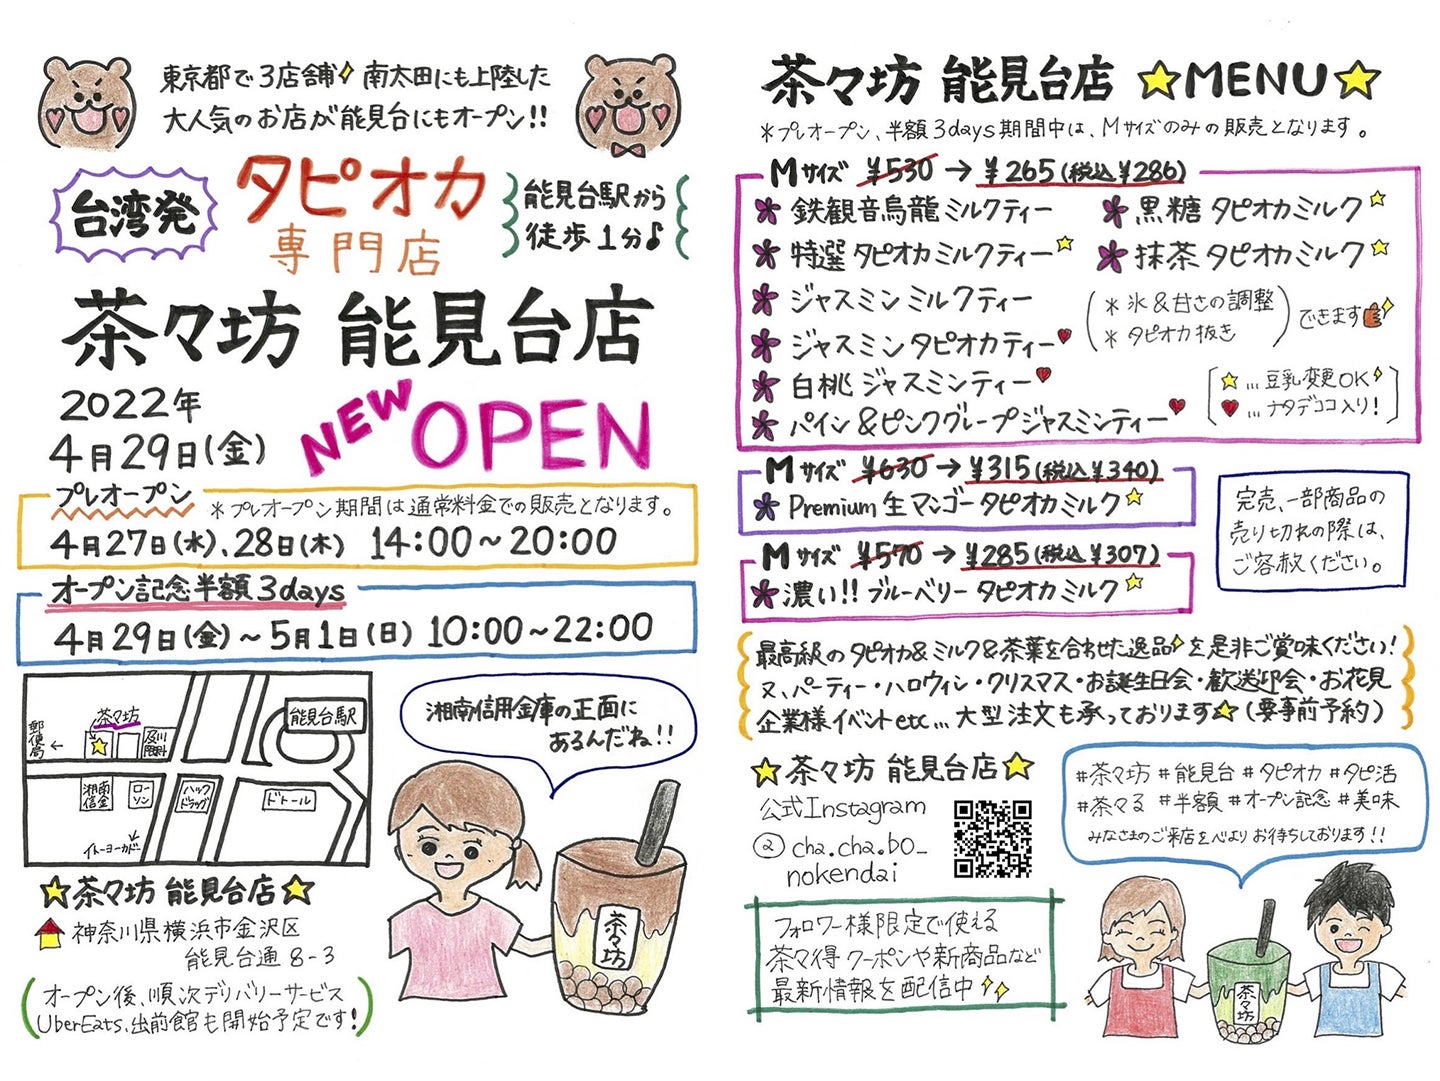 東京都で3店舗 南太田にも上陸した
大人気のお店が能見台にもオープン!!
台湾発
タピオカ
専門店
能見台駅から
徒歩1分♪
茶々坊 能見台店
2022年
4月29日(金)
NEW OPEN
プレオープン
*プレオープン期間は通常料金での販売となります。
4月27日(水)、28日(木) 14:00~20:00
オープン記念半額3days
4月29日(金)~5月1日(日) 10:00~22:00
能見台駅
茶々坊
郵便局
←
及川眼科
湘南信金
ローソン
ハックドラッグ
ドトール
イトーヨーカドー
湘南信用金庫の正面に
あるんだね!!
茶々坊
茶々坊 能見台店
神奈川県横浜市金沢区
能見台通8-3
オープン後、順次デリバリーサービス
UberEats、出前館も開始予定です!
茶々坊 能見台店 ☆MENU☆
*プレオープン、半額3days期間中は、Mサイズのみの販売となります。
Mサイズ ¥530→¥265(税込¥286)
鉄観音烏龍ミルクティー
特選タピオカミルクティー☆
ジャスミンミルクティー
ジャスミンタピオカティー♥
白桃ジャスミンティー♥
パイン&ピンクグループジャスミンティー♥
黒糖タピオカミルク☆
抹茶タピオカミルク☆
(*氷&甘さの調整
*タピオカ抜き) できます
☆…豆乳変更OK
♥…ナタデココ入り!
Mサイズ ¥630→¥315(税込¥340)
Premium生マンゴータピオカミルク☆
Mサイズ ¥570→¥285(税込¥307)
濃い!!ブルーベリータピオカミルク☆
完売、一部商品の
売り切れの際は、
ご容赦ください。
最高級のタピオカ&ミルク&茶葉を合わせた逸品を是非ご賞味ください!
又、パーティー・ハロウィン・クリスマス・お誕生日会・歓送迎会・お花見
企業様イベントetc…大型注文も承っております☆(要事前予約)
☆茶々坊 能見台店☆
公式Instagram
@cha.cha.bo_
nokendai
フォロワー様限定で使える
茶々得クーポンや新商品など
最新情報を配信中
#茶々坊 #能見台 #タピオカ #タピ活
#茶々る #半額 #オープン記念 #美味
みなさまのご来店を心よりお待ちしております!!
茶々坊